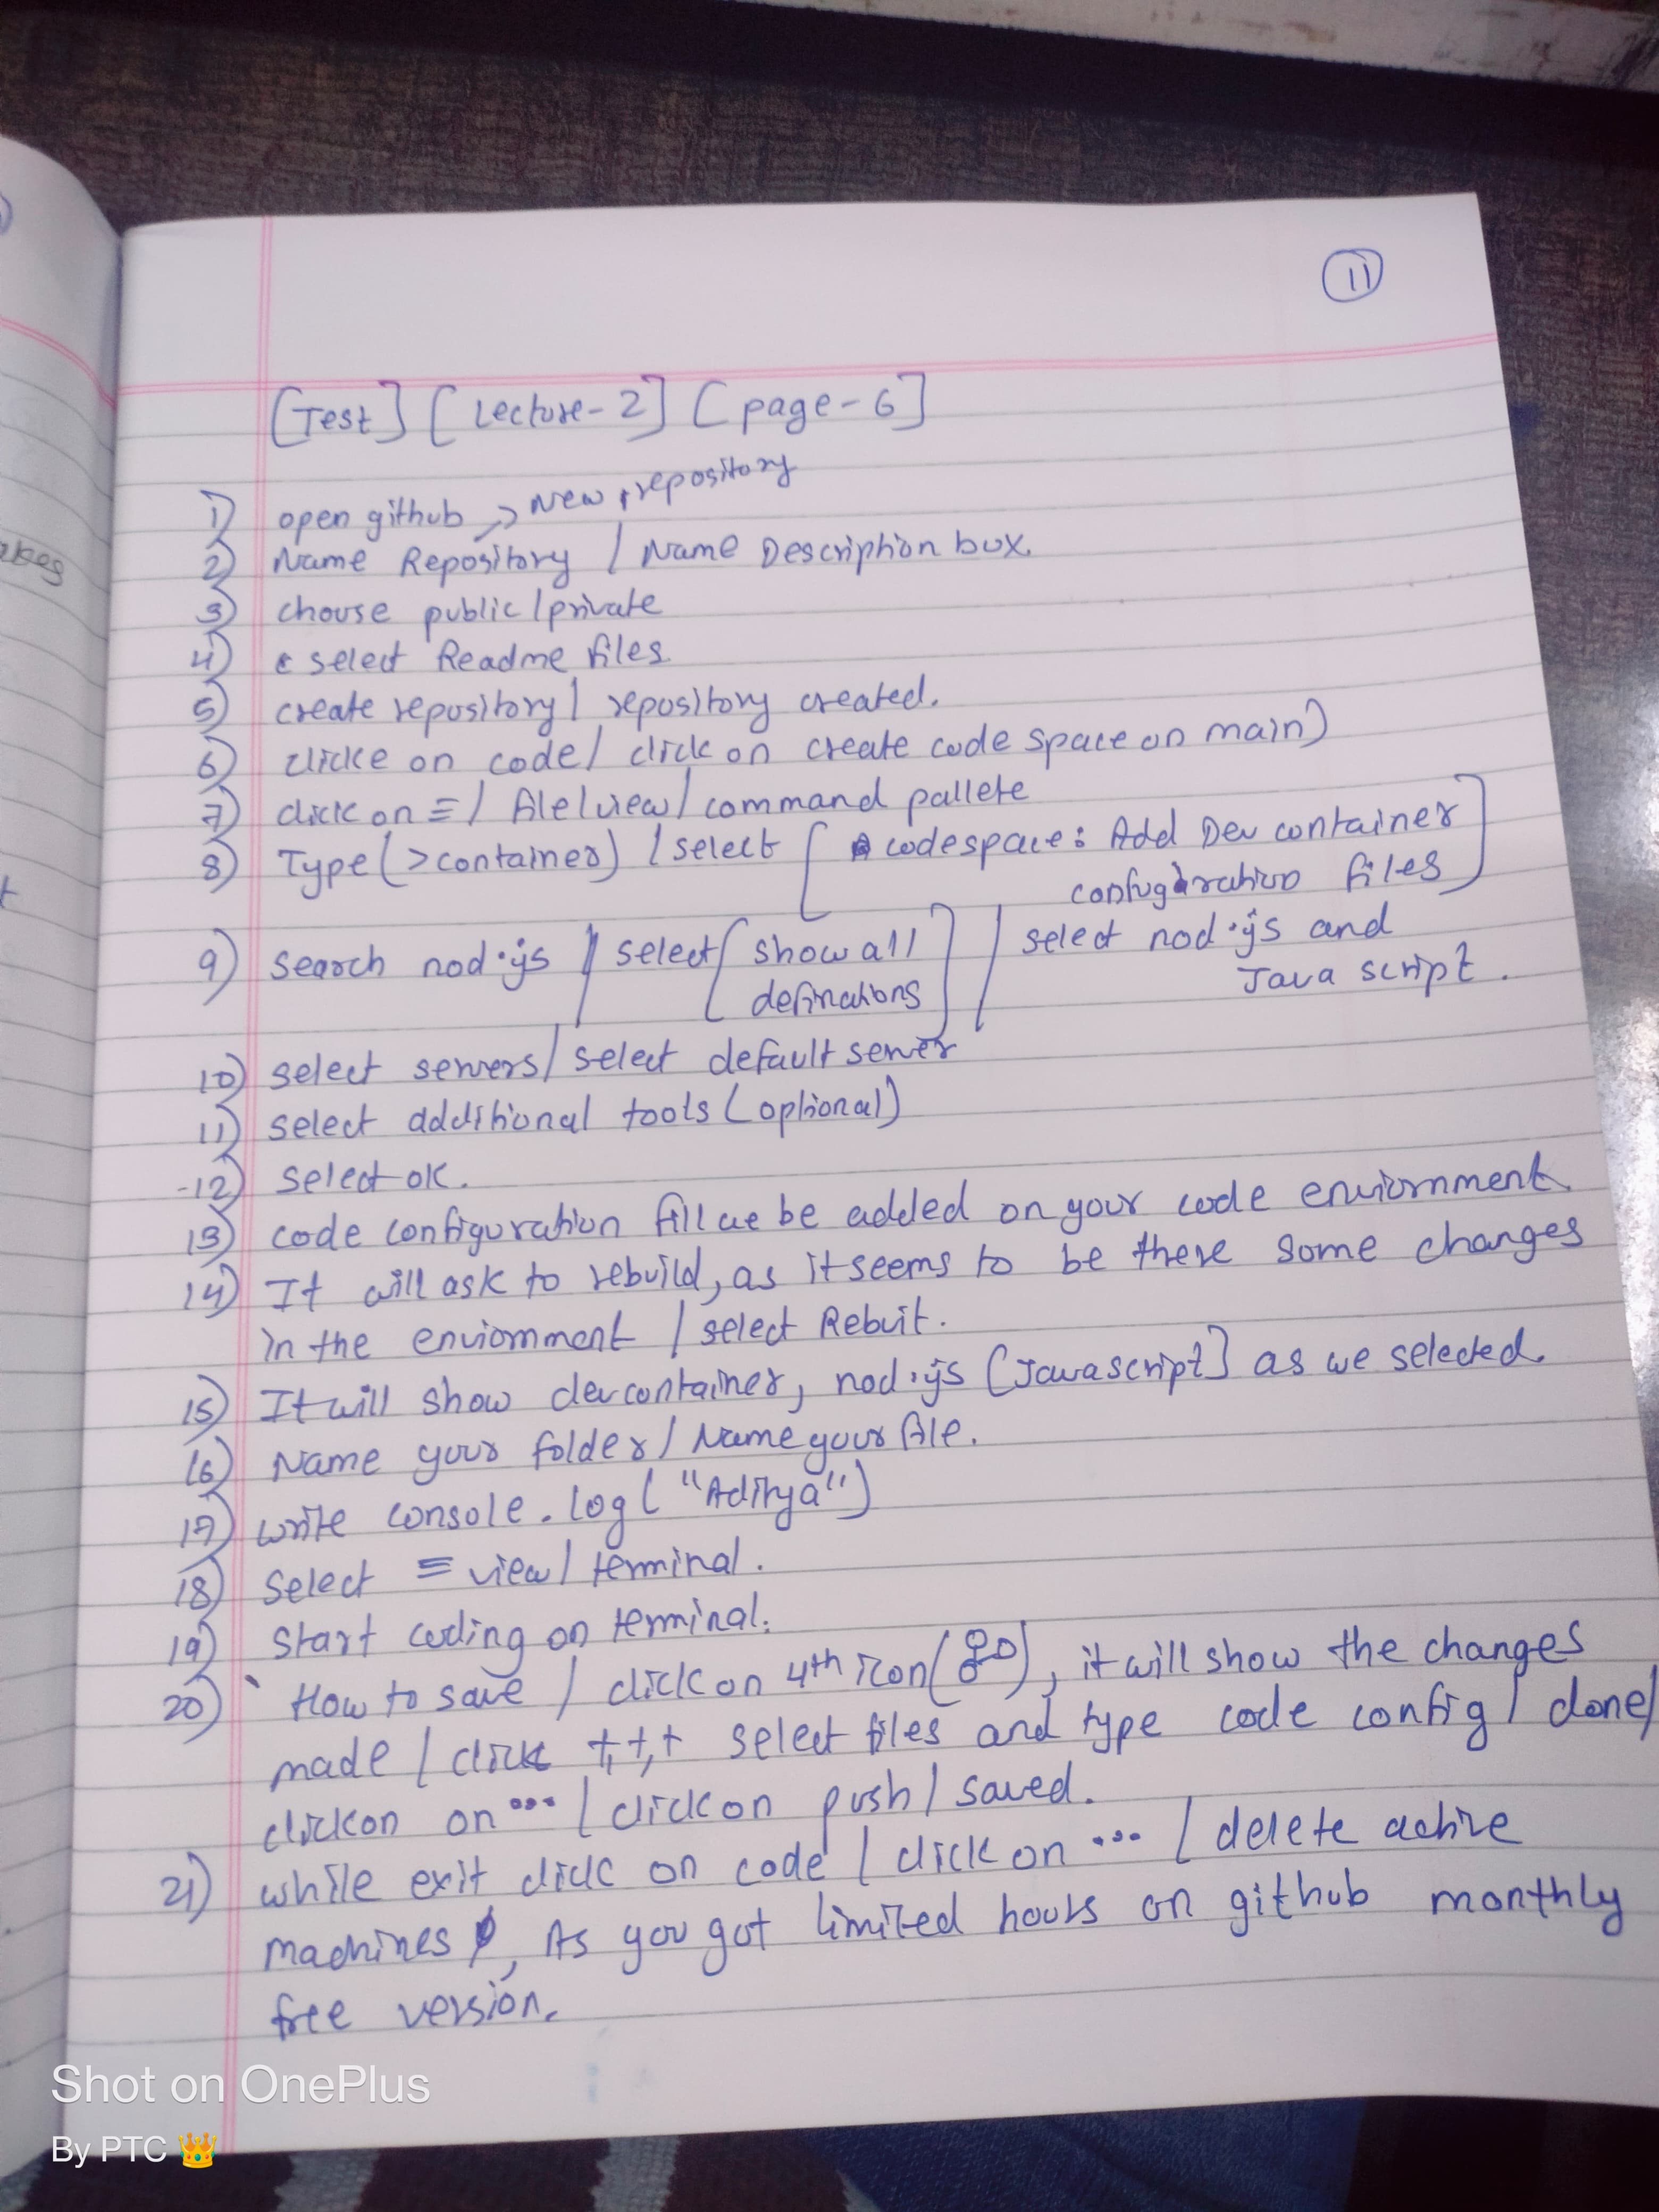 11
[Test] [Lecture-2] [page-6]
1) open github → New repository
2) Name Repository / Name Description box.
3) chouse public/private
4) select Readme files
5) create repository/ repository created.
6) clicke on code/ click on create code space on main)
7) click on ≡ / file/view/ command pallete
8) Type (>container) / select [ codespace: Add Dev container
confugration files ]
9) search nod.js / select [ show all / select nod.js and
definations ] Java script.
10) select servers/ select default server
11) select additional tools (optional)
-12) select ok.
13) code configuration be added on your code enviornment.
14) It will ask to rebuild, as it seems to be there some changes
in the enviornment / select Rebuit.
15) It will show devcontainer, nod.js [Javascript] as we selected.
16) Name your folder/ Name your file.
17) write console.log("Aditya")
18) Select ≡ view/ terminal.
19) Start coding on terminal.
20) How to save / click on 4th icon( ), it will show the changes
made / click +,+,+ select files and type code config / done/
clickon on ... / click on push / saved.
21) while exit click on code / click on ... / delete active
machines, As you got limited hours on github monthly
free version.
akes
t
Shot on OnePlus
By PTC 👑